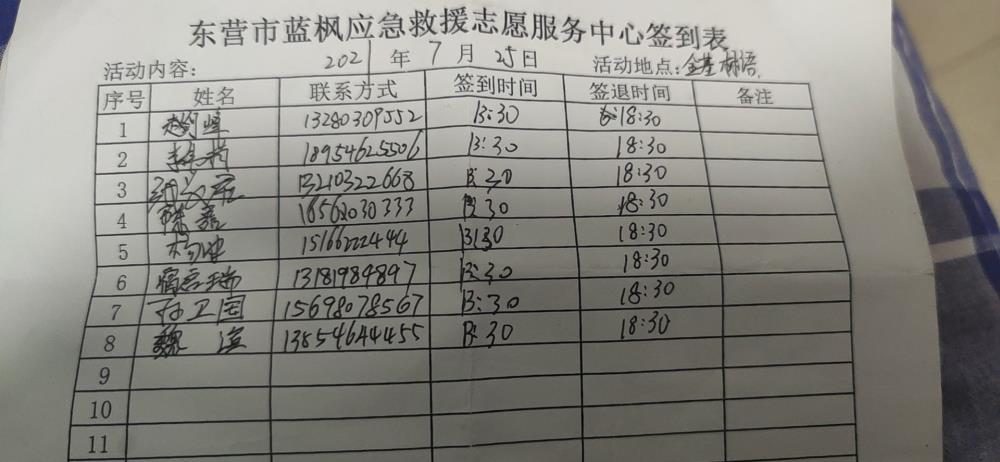 东营市蓝枫应急救援志愿服务中心签到表
活动内容: 2021年7月25日 活动地点:金基树语
序号 姓名 联系方式 签到时间 签退时间 备注
1 赵刚 13280309552 13:30 18:30
2 18954625506 13:30 18:30
3 13210322668 13:30 18:30
4 陈磊 16562030333 13:30 18:30
5 杨健 15166222444 13:30 18:30
6 13181984897 13:30 18:30
7 孙卫国 15698078567 13:30 18:30
8 魏滨 13854644455 13:30 18:30
9
10
11